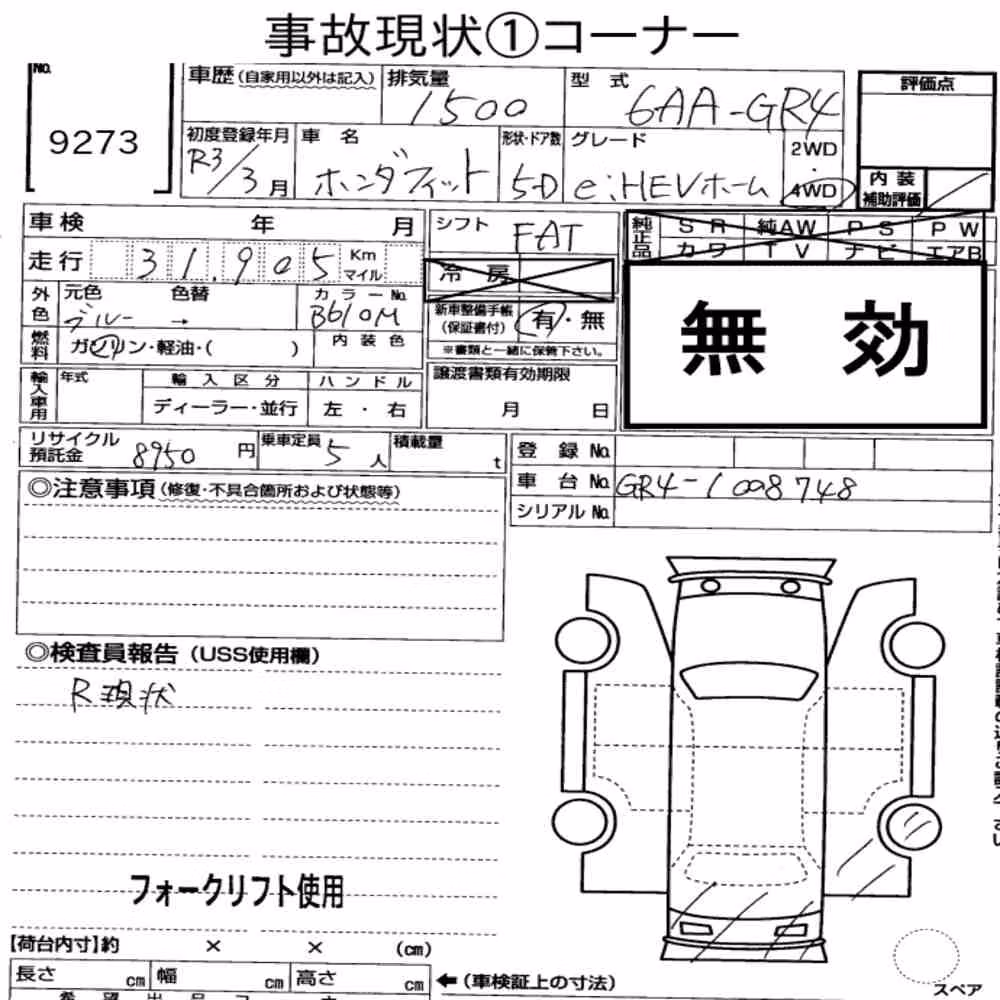 事故現状①コーナー
No.
9273
車歴 (自家用以外は記入)
排気量
1500
型 式
6AA-GR4
評価点
初度登録年月
R3/3月
車 名
ホンダフィット
形状・ドア数
5-D
グレード
e:HEVホーム
2WD
4WD
内 装
補助評価
車検 年 月
シフト
FAT
純正品
SR 純AW PS PW
カワ TV ナビ エアB
走行 31,905 Km マイル
冷 房
外色
元色 色替
ブルー →
カラーNo.
B610M
新車整備手帳
(保証書付)
有・無
※書類と一緒に保管下さい。
無 効
燃料
ガソリン・軽油・( )
内 装 色
輸入車用
年式
輸 入 区 分
ディーラー・並行
ハ ン ド ル
左 ・ 右
譲渡書類有効期限
月 日
リサイクル
預託金 8950 円
乗車定員 5 人
積載量 t
登 録 No.
車 台 No. GR4-1008748
シリアル No.
◎注意事項 (修復・不具合箇所および状態等)
◎検査員報告 (USS使用欄)
R現状
フォークリフト使用
【荷台内寸】約 × × (cm)
長さ cm 幅 cm 高さ cm
←(車検証上の寸法)
スペア